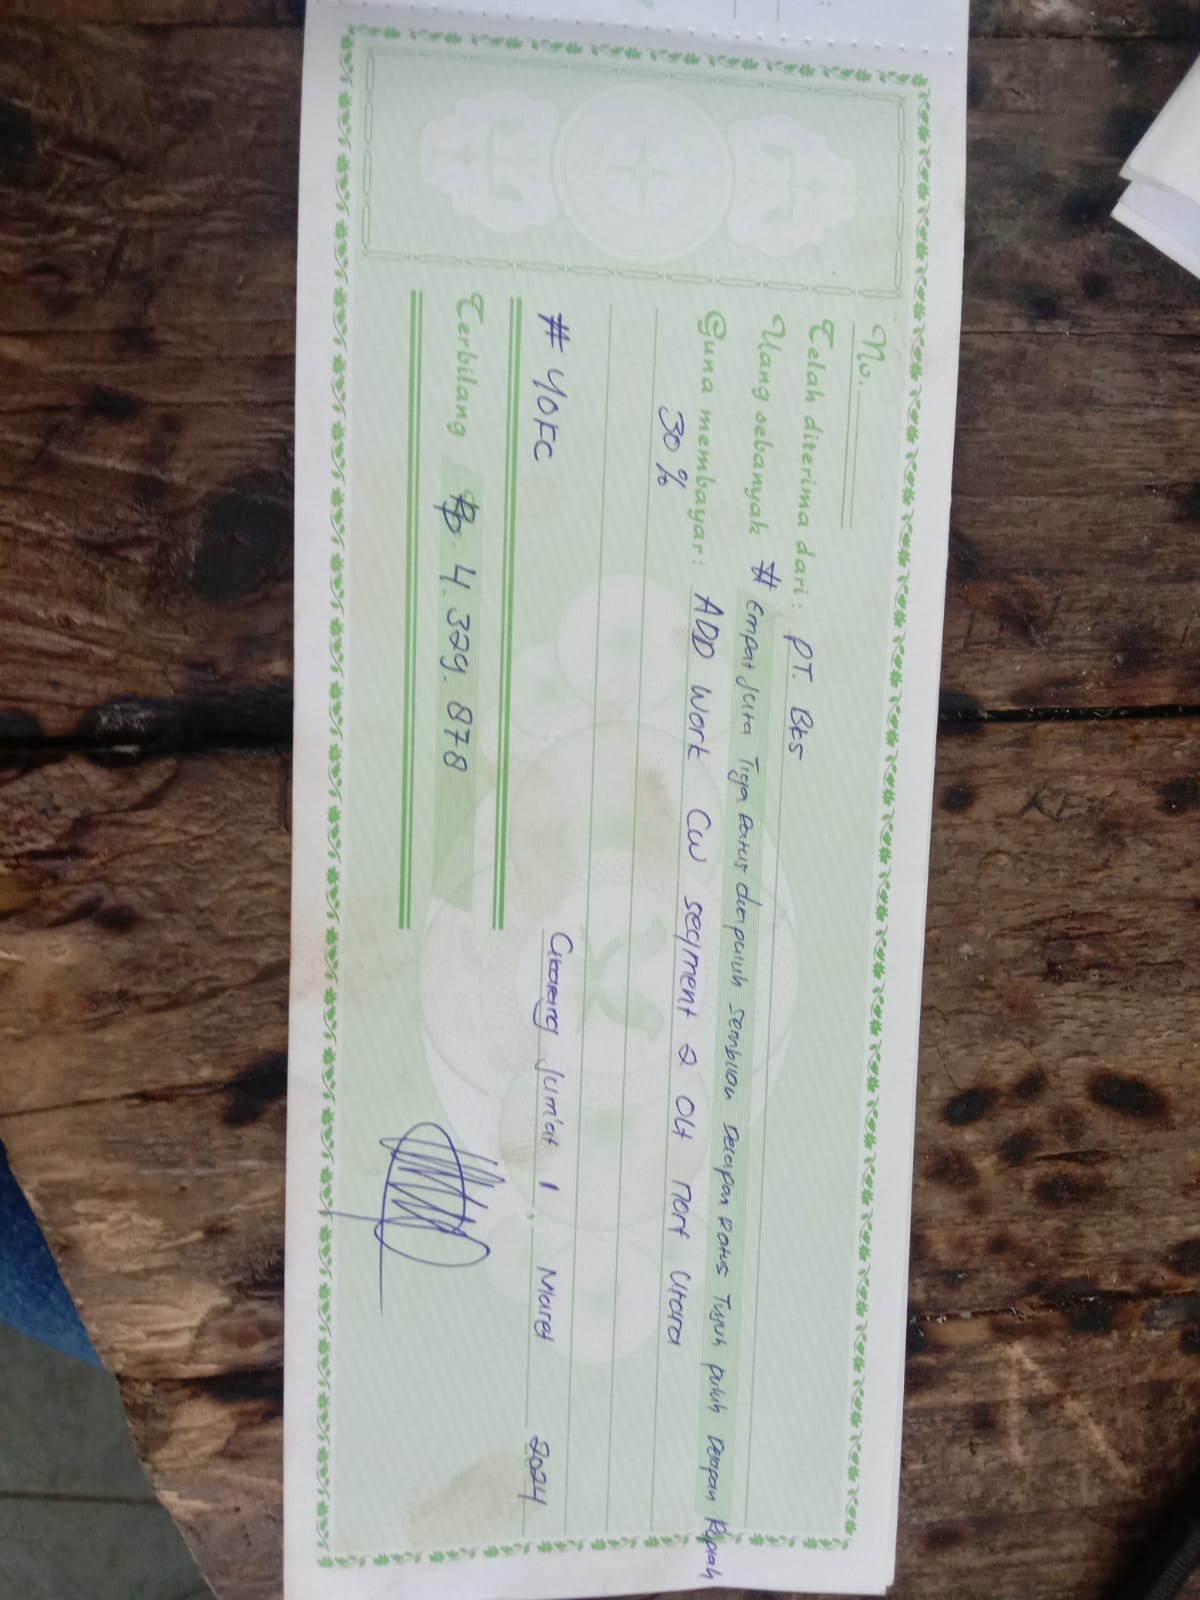 No.
Telah diterima dari: PT. BKS
Uang sebanyak # Empat Juta Tiga Ratus dua puluh sembilan Delapan Ratus Tujuh puluh Delapan Rupiah
Guna membayar: ADD Work CW segment 2 OLT nort Utara
30 %
# YOFC
Jum'at 1, Maret 2024
Terbilang Rp. 4.329.878